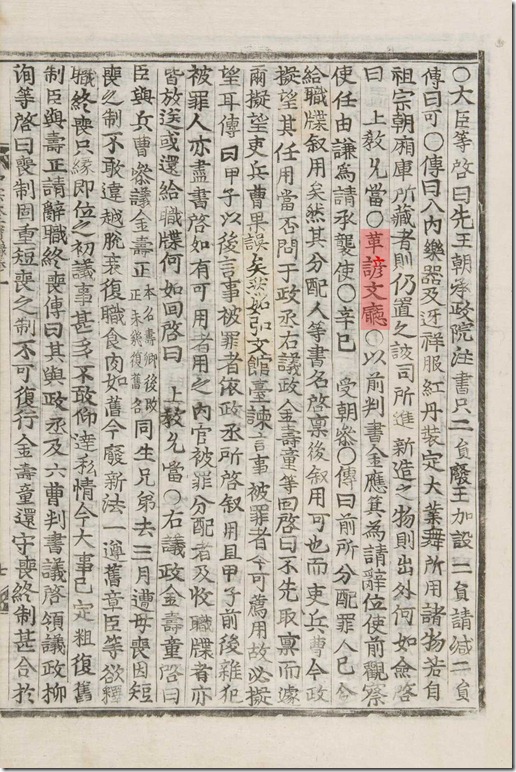 ○大臣等啓曰先王朝承政院注書只二員廢王加設二員請減二員
傳曰可○傳曰入內樂器及迓祥服紅丹裝定大葉舞所用諸物若自
祖宗朝廂庫所藏者則仍置之該司所進新造之物則出外何如僉啓
曰 上敎允當○革諺文廳○以前判書金應箕爲請辭位使前觀察
使任由謙爲請承襲使○辛巳 受朝參○傳曰前所分配罪人已令
給職牒叙用矣然其分配人等書名啓稟後叙用可也而吏兵曹今政
擬望其任用當否問于政丞右議政金壽童等回啓曰不先取稟而遽
爾擬望吏兵曹果誤矣然如弘文館臺諫言事被罪者今可薦用故必擬
望耳傳曰甲子以後言事被罪者依政丞所啓叙用且甲子前後雜犯
被罪人亦盡書啓如有可用者用之內官被罪分配者及收職牒者亦
皆放送或還給職牒何如回啓曰 上敎允當○右議政金壽童啓曰
臣與兵曹參議金壽正本名壽卿後改正未幾復舊名同生兄弟去三月遭母喪因短
喪之制不敢違越脫衰復職食肉如舊今廢新法一遵舊章臣等欲釋
職終喪只緣卽位之初議事甚多不敢仰達私情今大事已定粗復舊
制臣與壽正請辭職終喪傳曰其與政丞及六曹判書議啓領議政柳
洵等啓曰喪制固重短喪之制不可復行金壽童還守喪終制甚合於